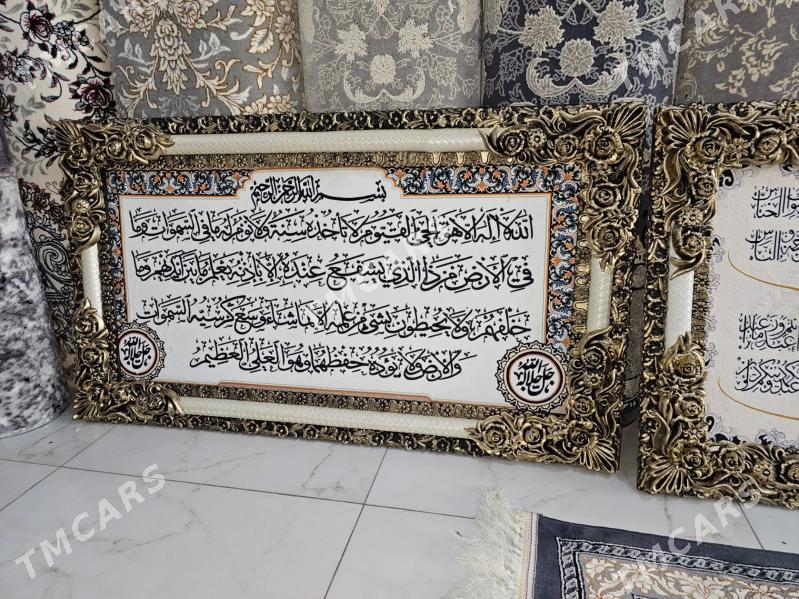 بسم الله الرحمن الرحيم
الله لا اله الا هو الحي القيوم لا تأخذه سنة ولا نوم له ما في السموات وما
في الارض من ذا الذي يشفع عنده الا باذنه يعلم ما بين ايديهم وما
خلفهم ولا يحيطون بشيء من علمه الا بما شاء وسع كرسيه السموات
والارض ولا يؤده حفظهما وهو العلي العظيم
الله جل جلاله
الله جل جلاله
TMCARS
TMCARS
TMCARS
TMCARS
TMCARS